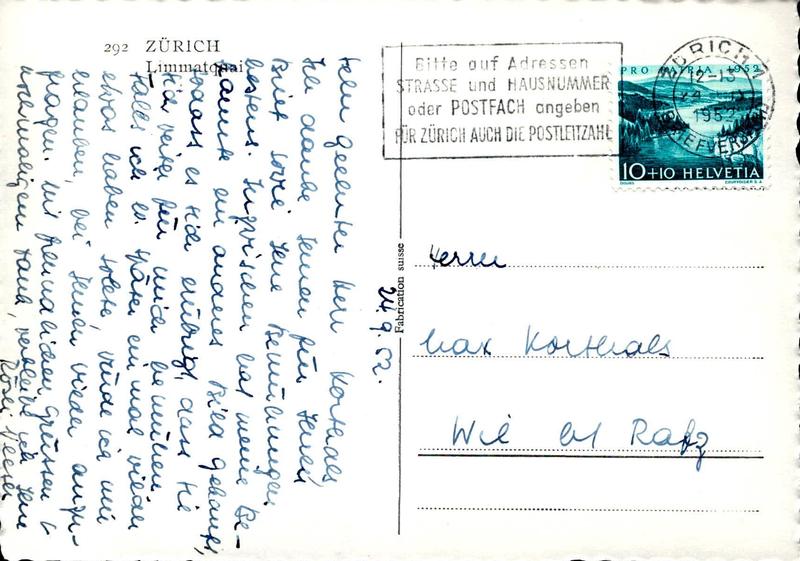 292 ZÜRICH
Limmatquai
Sehr geehrter Herr Korthals
Ich danke Ihnen für Ihren
Brief sowie Ihre Bemühungen
bestens. Inzwischen hat meine Be-
kannte ein anderes Bild gekauft,
sodass es sich erübrigt, dass Sie
sich weiter für mich bemühen.
Falls ich ev. später einmal wieder
etwas haben sollte, würde ich mir
erlauben, bei Ihnen wieder anzu-
fragen. Mit freundlichen Grüssen &
nochmaligem Dank, verbleibe ich Ihre
Rösli
24.9.52.
Fabrication suisse
Bitte auf Adressen
STRASSE und HAUSNUMMER
oder POSTFACH angeben
FÜR ZÜRICH AUCH DIE POSTLEITZAHL
ZÜRICH 1
1952
BRIEFVERSAND
PRO PATRIA 1952
10+10 HELVETIA
COURVOISIER S.A.
Herrn
Max Korthals
Wil bt Rafz